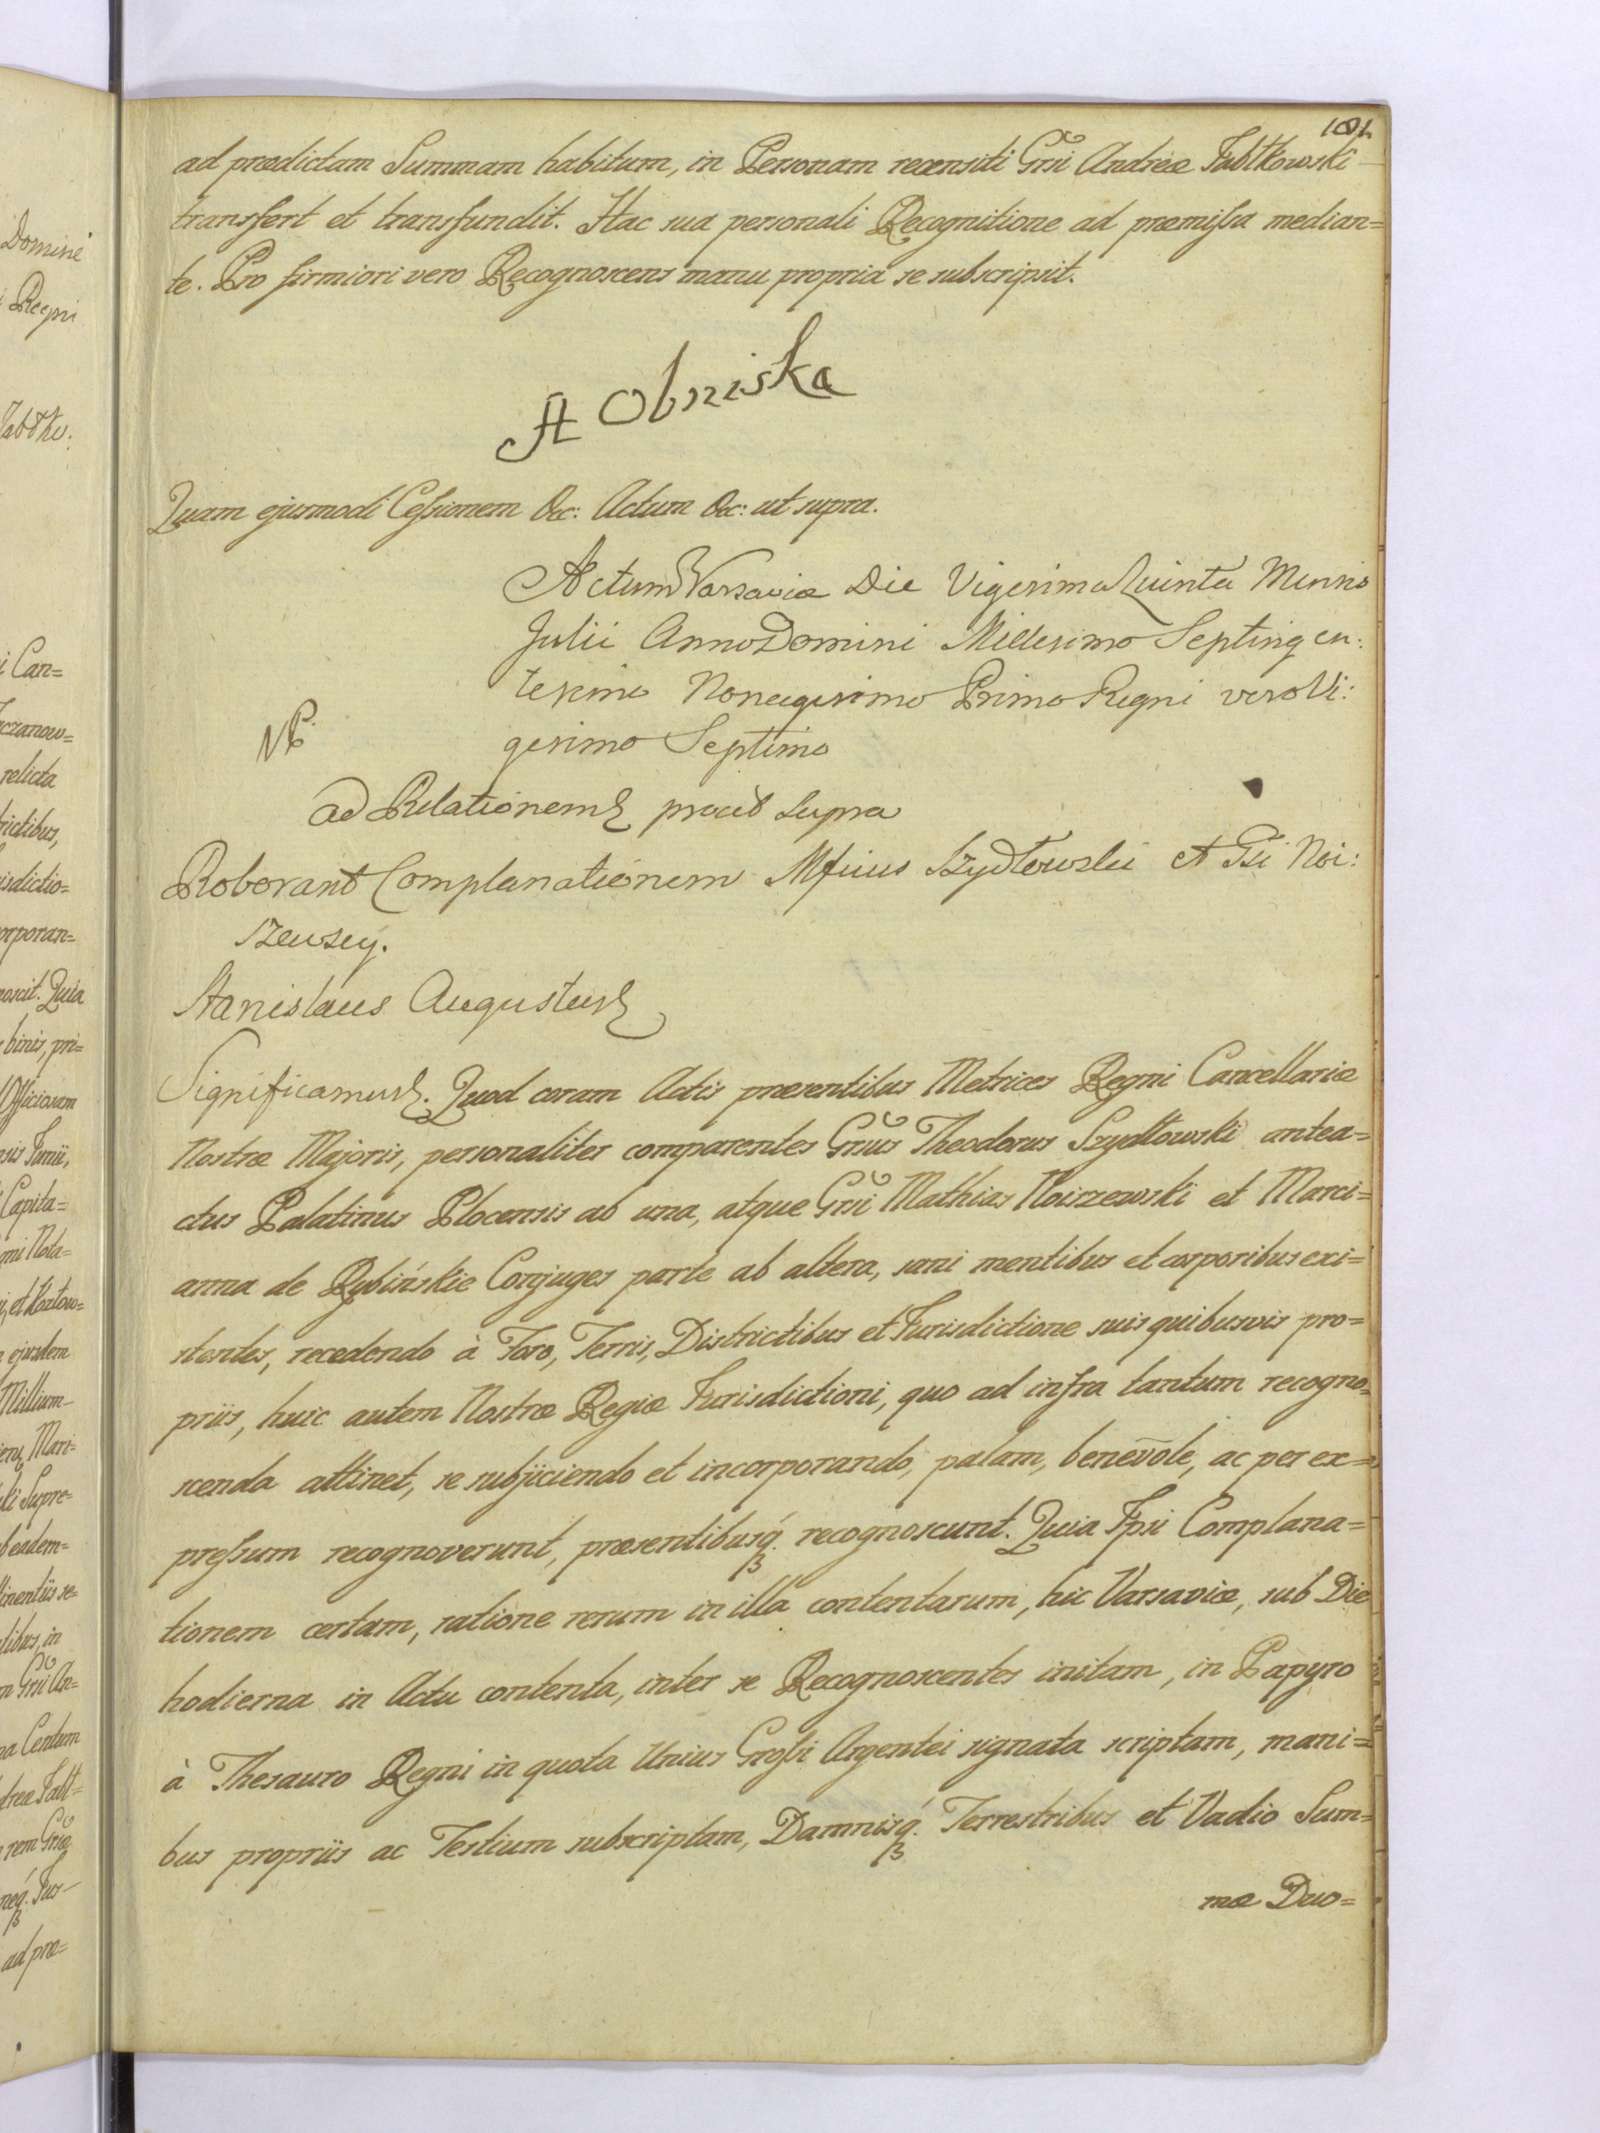 101.
ad prædictam Summam habitum, in Personam recensiti Grsi Andreæ Jabłkowski
transfert et transfundit. Hac sua personali Recognitione ad præmissa median=
te. Pro firmiori vero Recognoscens manu propria se subscripsit.
Quam ejusmodi Cessionem &c: Actum &c: ut supra.
Actum Varsaviæ Die Vigesima Quinta Mensis
Julii Anno Domini Millesimo Septingen:
tesimo Nonagesimo Primo Regni vero Vi:
gesimo Septimo
ad Relationem prout supra
Roborant Complanationem Mficus Szydłowski et Gsi Noi:
szewscy.
Stanislaus Augustus
Significamus. Quod coram Actis præsentibus Metrices Regni Cancellariæ
Nostræ Majoris, personaliter comparentes Grsus Theodorus Szydłowski antea=
ctus Palatinus Plocensis ab una, atque Grsi Mathias Noiszewski et Marci=
anna de Rybińskie Conjuges parte ab altera, sani mentibus et corporibus exi=
stentes, recedendo à Foro, Terris, Districtibus et Jurisdictione suis quibusvis pro=
priis, huic autem Nostræ Regiæ Jurisdictioni, quo ad infra tantum recogno=
scenda attinet, se subjiciendo et incorporando, palam, benevole, ac per ex=
pressum recognoverunt, præsentibusq́. recognoscunt. Quia Ipsi Complana=
tionem certam, ratione rerum in illa contentarum, hic Varsaviæ, sub Die
hodierna in Actu contenta, inter se Recognoscentes initam, in Papyro
à Thesauro Regni in quota Unius Grossi Argentei signata scriptam, mani=
bus propriis ac Testium subscriptam, Damnisq́. Terrestribus et Vadio Sum=
mæ Duo=